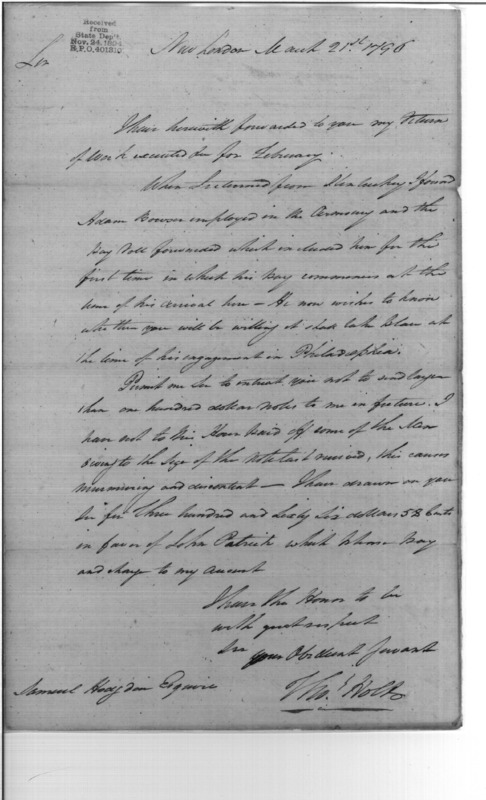 Received
from
State Dept.
Nov. 24, 1894
R.P.O. 401310
New London March 21st 1796
Sir
I have herewith forwarded to you my Return
of Work executed &c for February.
When I returned from I found
Adam Bowen employed in the Armoury and the
Pay Roll forwarded which included him for the
first time in which his Pay commences at the
time of his arrival here — He now wishes to know
whether you will be willing it shod take place at
the time of his engagement in Philadelphia.
Permit me Sir to intreat you not to send larger
than one hundred dollar notes to me in future. I
have not to this Hour paid off some of the Men
owing to the Size of the Note last received, this causes
murmuring and discontent — I have drawn on you
Sir for Three hundred and Sixty Six dollars 58 Cents
in favor of John Patrick which please Pay
and charge to my Account
I have the Honor to be
with great respect
Sir your Obedient Servant
Thos Holt
Samuel Hodgdon Esquire